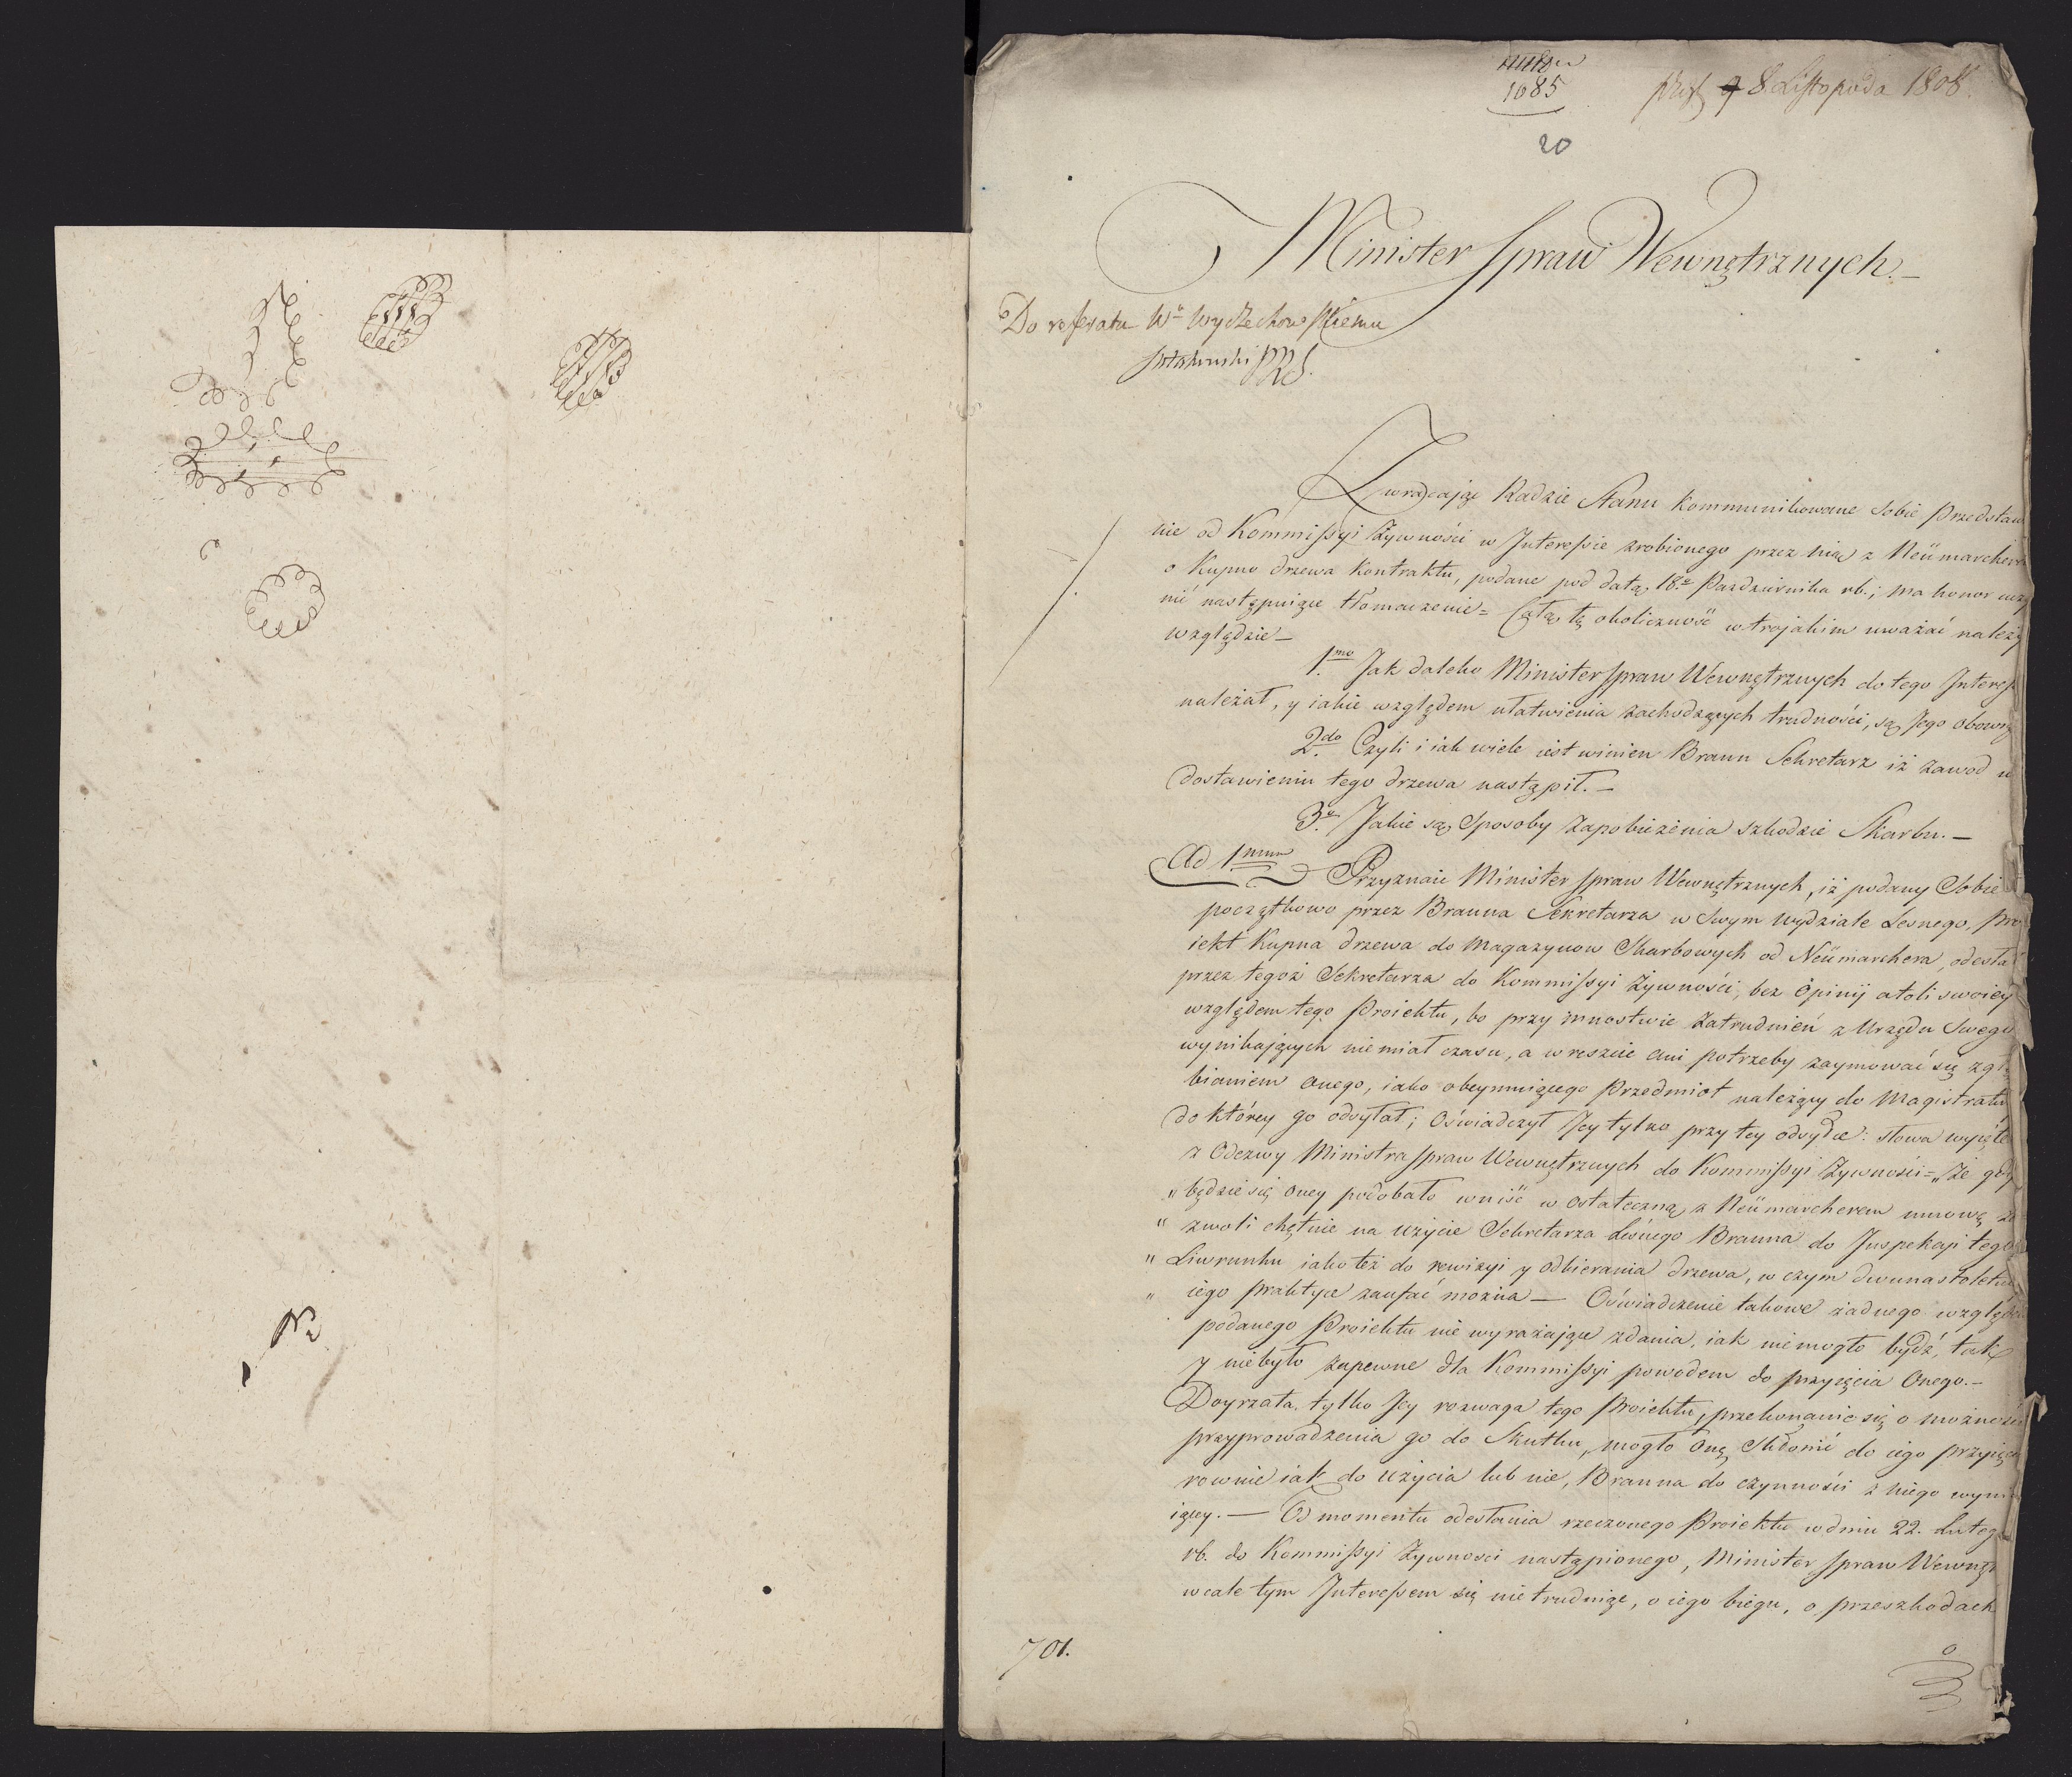 1685
8 Listopada 1808.
20
Minister Spraw Wewnętrznych.—
Do referatu Wu Wyczechowskiemu
Zwracaiąc Radzie Stanu kommunikowane Sobie Przedstaw
nie od Kommissyi Żywności w Interessie zrobionego przez nią z Neümarcherem
o Kupno drzewa Kontraktu, podane pod datą 18o Pazdziernika rb.; ma honor uczy
nić następuiące tłomaczenie = Całą tę okoliczność w trojakim uważać należy
względzie —
1mo Jak daleko Minister Spraw Wewnętrznych do tego Interess
należał, y iakie względem ułatwienia zachodzących trudności, są Jego obowią
2do Czyli i iak wiele iest winien Braun Sekretarz iż zawod w
dostawieniu tego drzewa nastąpił. —
3o Jakie są Sposoby zapobieżenia szkodzie Skarbu. —
Ad 1mum Przyznaie Minister Spraw Wewnętrznych, iż podany Sobie
początkowo przez Brauna Sekretarza w Swym Wydziale Lesnego, Pro
iekt Kupna drzewa do Magazynow Skarbowych od Neümarchera, odesłał
przez tegoż Sekretarza do Kommissyi Żywności, bez Opinij atoli swoiey
względem tego Proiektu, bo przy mnostwie Zatrudnień z Urzędu Swego
wynikaiących nie miał czasu, a wreszcie ani potrzeby zaymować się zgłę
bianiem onego, iako obeymuiącego Przedmiot należący do Magistratu
do którey go odsyłał; Oświadczył Jey tylko przy tey odsyłce: słowa wyięte
z Odezwy Ministra Spraw Wewnętrznych do Kommissyi Żywności = „Że gdy
„ będzie się oney podobało wniść w ostateczną z Neümarcherem umowę ze
„ zwoli chętnie na użycie Sekretarza Leśnego Brauna do Inspekcji tego
„ Liwrunku iako też do rewizyi y odbierania drzewa, w czym dwunastoletn
„ iego praktyce zaufać można — Oświadczenie takowe żadnego względem
podanego Proiektu nie wyrażaiąc zdania, iak nie mogło bydź, tak
y niebyło zapewne dla Kommissyi powodem do przyięcia Onego. —
Doyrzała tylko Jey rozwaga tego Proiektu, przekonanie się o możności
przyprowadzenia go do Skutku, mogło Onę Skłonić do iego przyięcia
rownie iak do użycia lub nie, Brauna do czynności z niego wyni
iącey. — Od momentu odesłania rzeczonego Proiektu w dniu 22. Lutego
rb. do Kommissyi Żywności nastąpionego, Minister Spraw Wewnętr
wcale tym Interessem się nie trudniąc, o iego biegu, o przeszkodach
701.